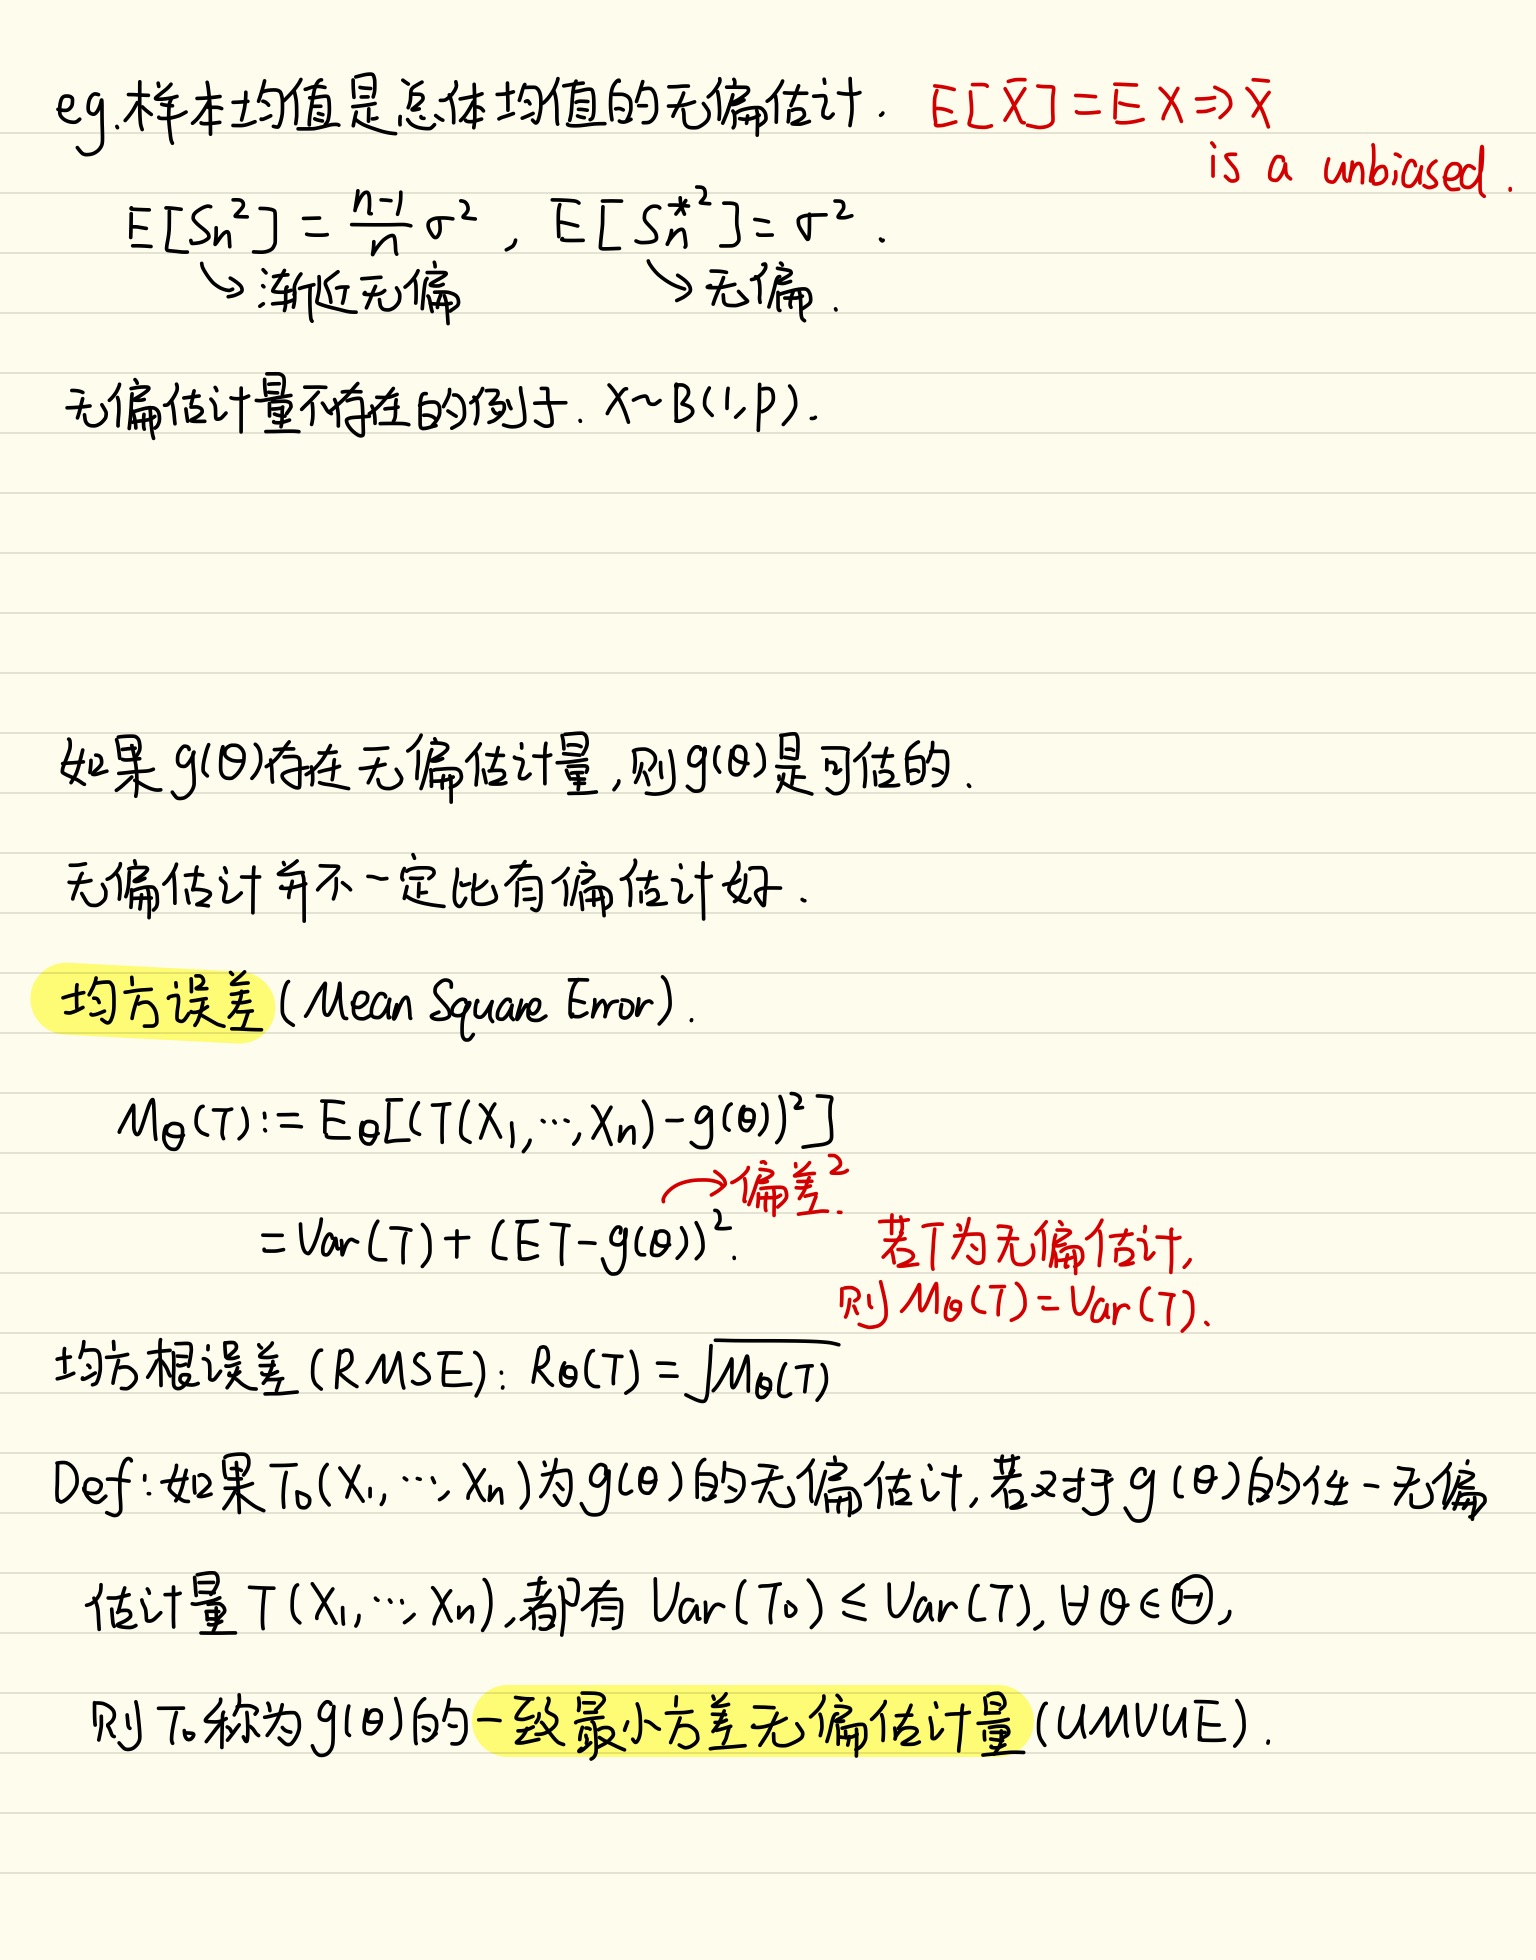 eg.样本均值是总体均值的无偏估计. E[X̄]=EX⇒X̄
is a unbiased.
E[Sn²] = (n-1)/n σ², E[Sn*²]=σ².
↘渐近无偏 ↘无偏.
无偏估计量不存在的例子. X~B(1,p).
如果g(θ)存在无偏估计量,则g(θ)是可估的.
无偏估计并不一定比有偏估计好.
均方误差(Mean Square Error).
Mθ(T):= Eθ[(T(X₁,…,Xn)-g(θ))²]
→偏差².
=Var(T)+(ET-g(θ))².
若T为无偏估计,
则Mθ(T)=Var(T).
均方根误差(RMSE): Rθ(T)=√Mθ(T)
Def:如果T₀(X₁,…,Xn)为g(θ)的无偏估计,若对于g(θ)的任一无偏
估计量T(X₁,…,Xn),都有Var(T₀)≤Var(T),∀θ∈Θ,
则T₀称为g(θ)的一致最小方差无偏估计量(UMVUE).